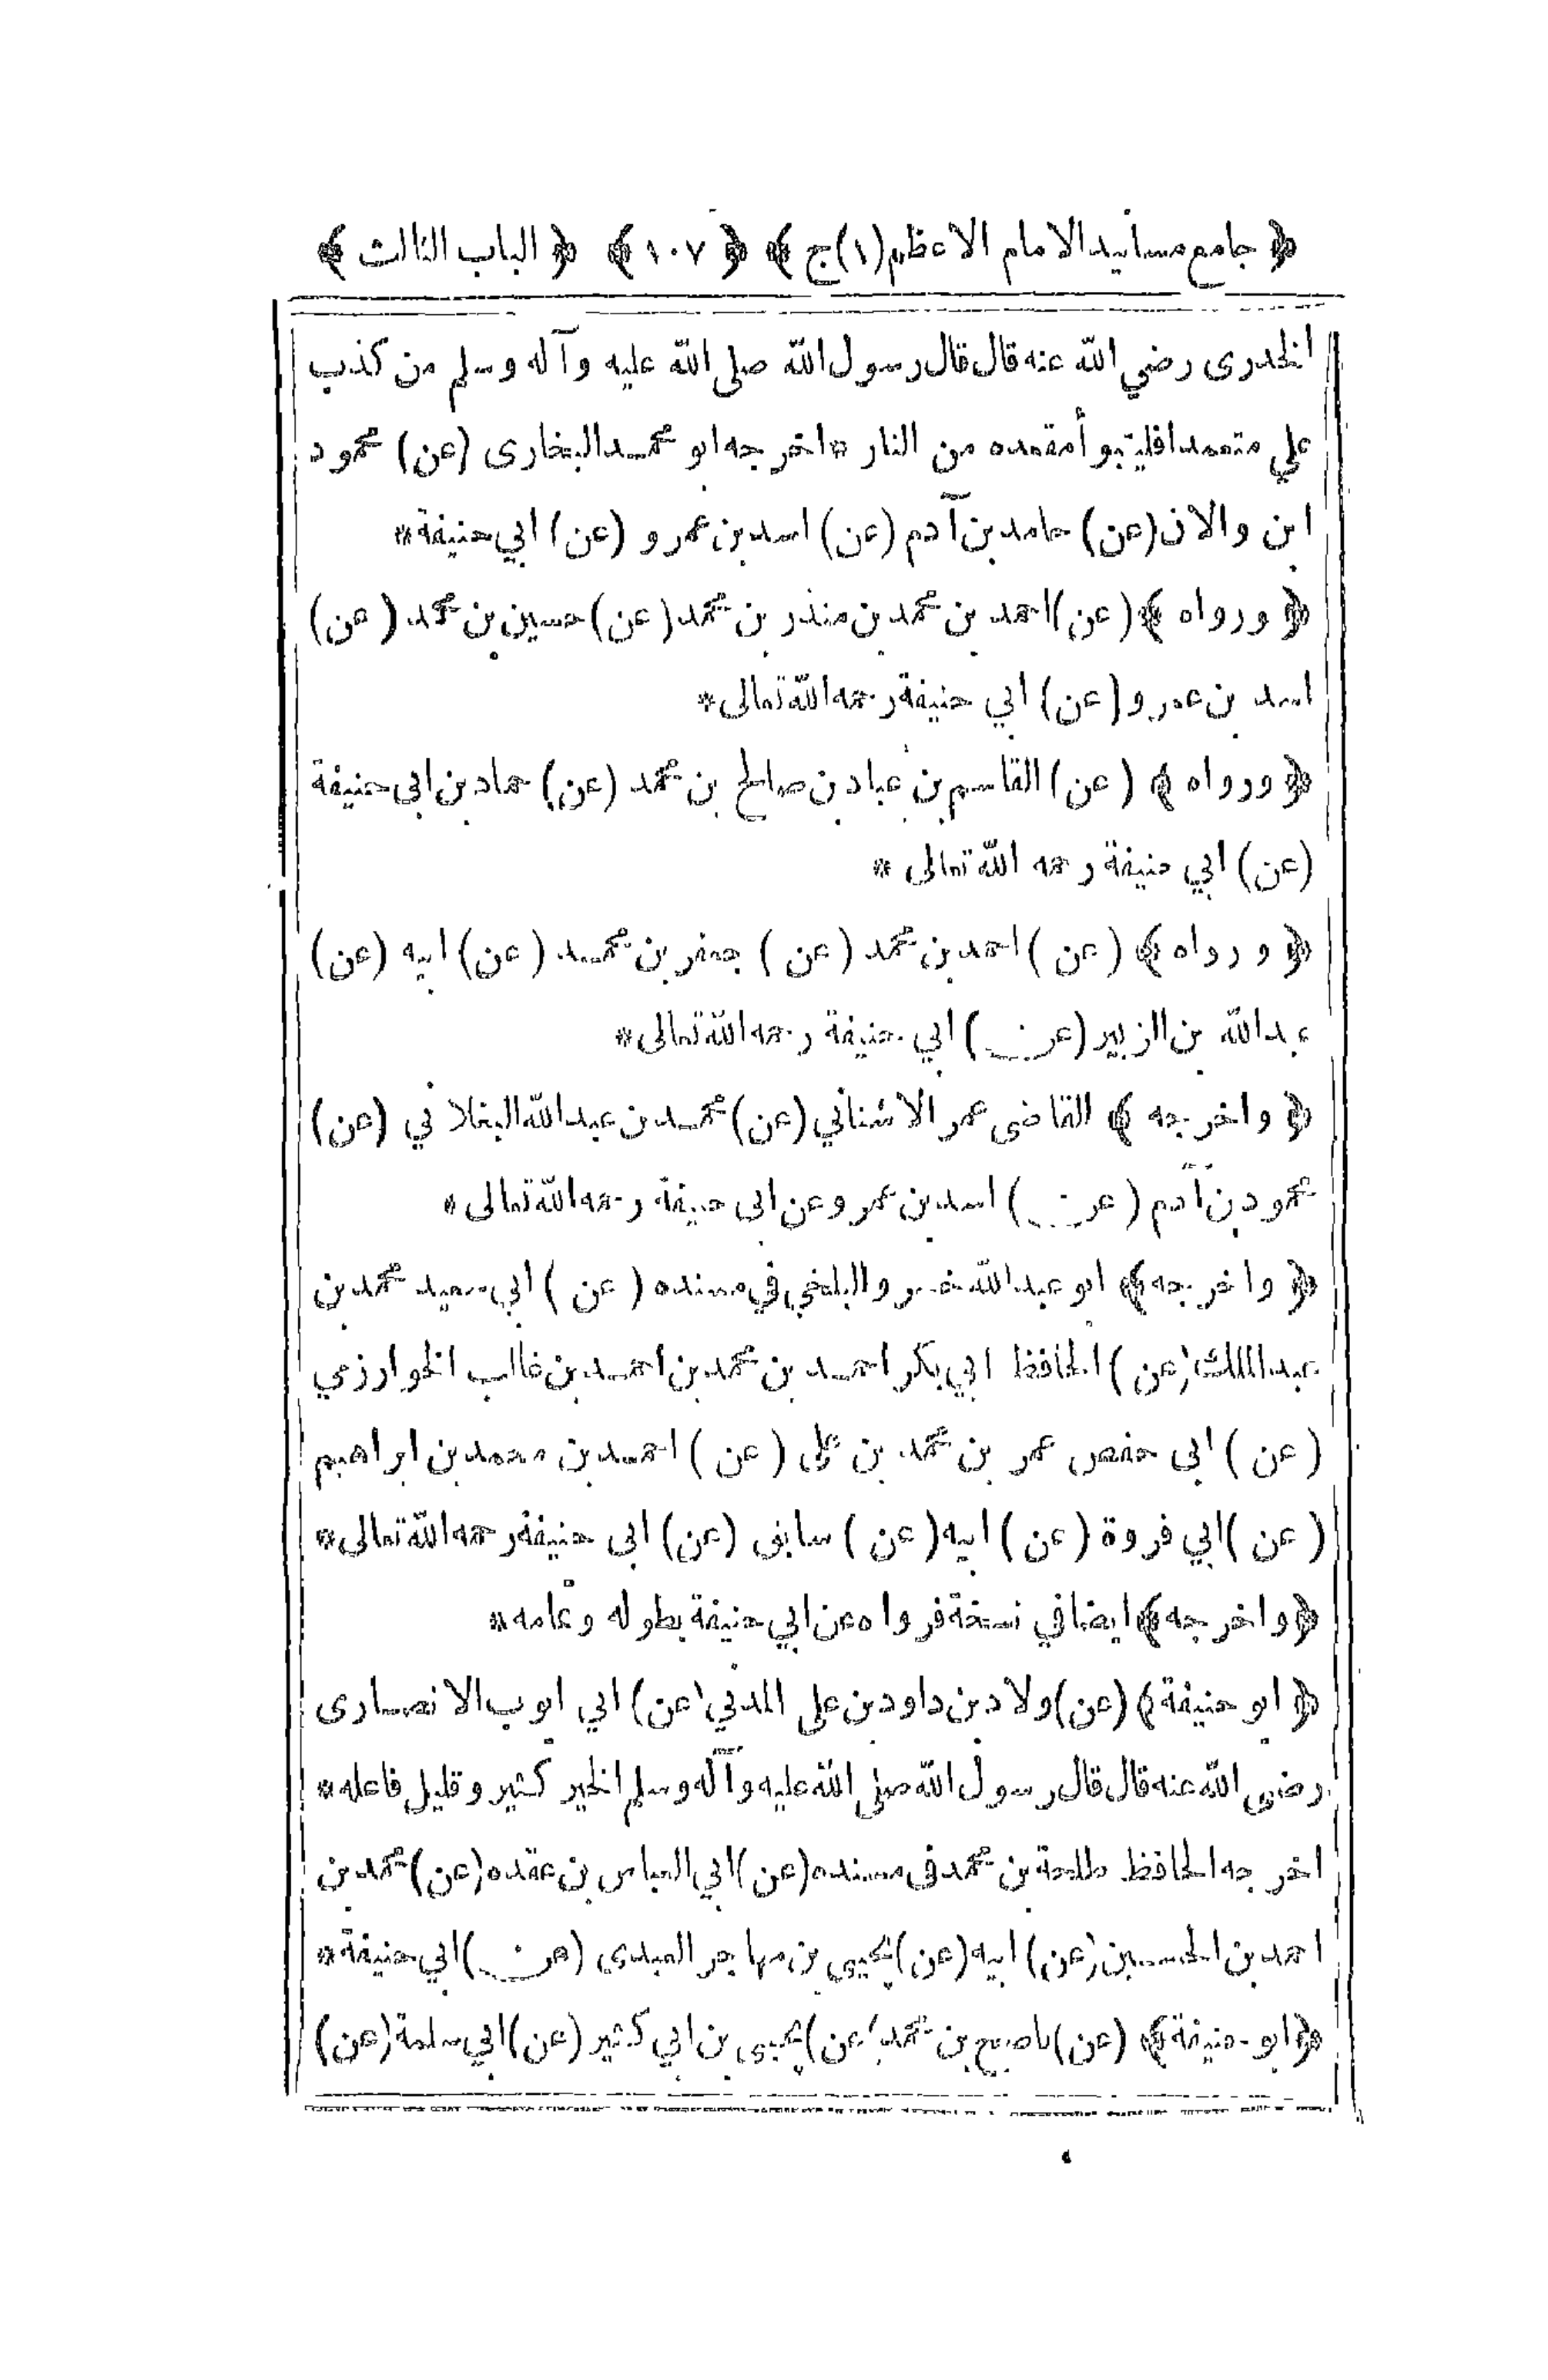 ﴿ جامع مسانيد الامام الاعظم (١) ج ﴾ ﴿ ١٠٧ ﴾ ﴿ الباب الثالث ﴾
الخدرى رضي الله عنه قال قال رسول الله صلى الله عليه وآله وسلم من كذب
علي متعمدا فليتبوأ مقعده من النار * اخرجه ابو محمد البخارى (عن) محمود
ابن والان (عن) حامد بن آدم (عن) اسد بن عمرو (عن) ابي حنيفة *
﴿ ورواه ﴾ (عن) احمد بن محمد بن منذر بن محمد (عن) حسين بن محمد (عن)
اسد بن عمرو (عن) ابي حنيفة رحمه الله تعالى *
﴿ ورواه ﴾ (عن) القاسم بن عباد بن صالح بن محمد (عن) حماد بن ابى حنيفة
(عن) ابي حنيفة رحمه الله تعالى *
﴿ ورواه ﴾ (عن) احمد بن محمد (عن) جعفر بن محمد (عن) ابيه (عن)
عبد الله بن الزبير (عن) ابي حنيفة رحمه الله تعالى *
﴿ واخرجه ﴾ القاضى عمر الاشناني (عن) محمد بن عبد الله البغلاني (عن)
محمود بن آدم (عن) اسد بن عمرو عن ابى حنيفة رحمه الله تعالى *
﴿ واخرجه ﴾ ابو عبد الله خسرو البلخي في مسنده (عن) ابي سعيد محمد بن
عبد الملك (عن) الحافظ ابي بكر احمد بن محمد بن احمد بن غالب الخوارزمي
(عن) ابى حفص عمر بن محمد بن علي (عن) احمد بن محمد بن ابراهيم
(عن) ابي فروة (عن) ابيه (عن) سابق (عن) ابى حنيفة رحمه الله تعالى *
﴿ واخرجه ﴾ ايضا في نسخة فرواه عن ابي حنيفة بطوله وتمامه *
﴿ ابو حنيفة ﴾ (عن) ولاد بن داود بن علي المدني (عن) ابي ايوب الانصارى
رضى الله عنه قال قال رسول الله صلى الله عليه وآله وسلم الخير كثير وقليل فاعله *
اخرجه الحافظ طلحة بن محمد فى مسنده (عن) ابي العباس بن عقده (عن) محمد بن
احمد بن الحسين (عن) ابيه (عن) يحيى بن مهاجر العبدي (عن) ابي حنيفة *
﴿ ابو حنيفة ﴾ (عن) ناصح بن محمد (عن) يحيى بن ابي كثير (عن) ابي سلمة (عن)